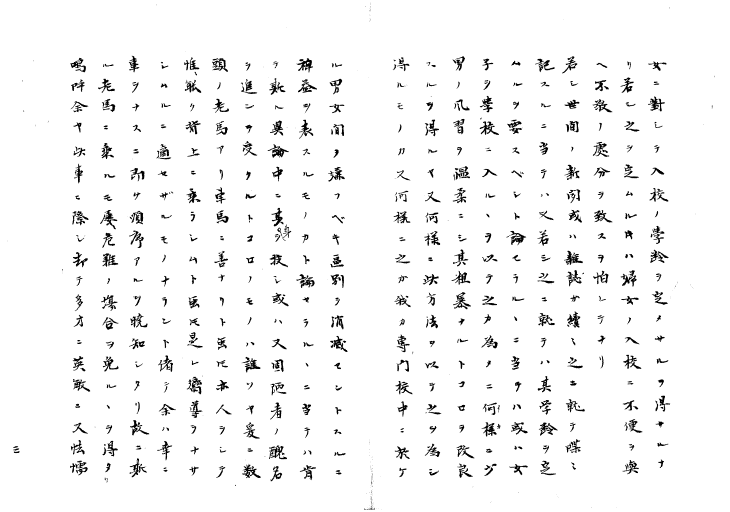 女ニ對シテ入校ノ學齡ヲ定メサルヲ得サルナ
リ若シ之ヲ定ムルトキハ婦女ノ入校ニ不便ヲ與
ヘ不敬ノ處分ヲ致スヲ怕レテナリ
若シ世間ノ新聞或ハ雜誌カ續々之ニ就テ喋々
記スルニ当テハ又若シ之ニ就テハ其学齡ヲ定
ムルヲ要スベシト論セラルヽニ当テハ或ハ女
子ヲ学校ニ入ルヽヲ以テ之カ為メニ何様ニゾ
男ノ風習ヲ温柔ニシ其粗暴ナルトコロヲ改良
スルヲ得ルヤ又何様ニ此方法ヲ以テ之ヲ為シ
得ルモノカ又何様ニ之カ我カ専門校中ニ於ケ
ル男女間ヲ壊フベキ區別ヲ消滅セントスルニ
裨益ヲ表スルモノカト論セラルヽニ当テハ肯
テ斯ル異論中ニ真身ヲ投シ或ハ又固陋者ノ醜名
ヲ進ンテ受クルトコロノモノハ誰ソヤ爰ニ数
頭ノ老馬アリ車馬ニ善ナリト虽モ本人ヲシテ
惟ニ馭リ背上ニ乗ラシムト虽モ是レ嚮導ヲナサ
シムルニ適セザルモノナラント偖テ余ハ幸ニ
車ヲナスニ即サ順序アルヲ暁知シタリ故ニ斯
ル老馬ニ乗ルモ屡危難ノ場合ヲ免ルヽヲ得タリ
嗚呼余ヤ此車ニ際シ却テ多方ニ英敏ニ又怯懦
三